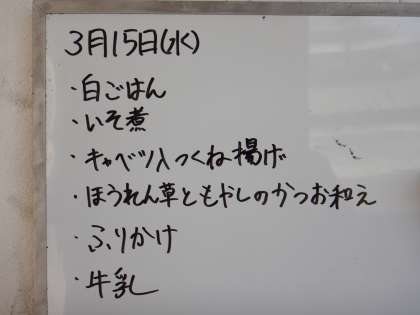 3月15日(水)
・白ごはん
・いそ煮
・キャベツ入つくね揚げ
・ほうれん草ともやしのかつお和え
・ふりかけ
・牛乳